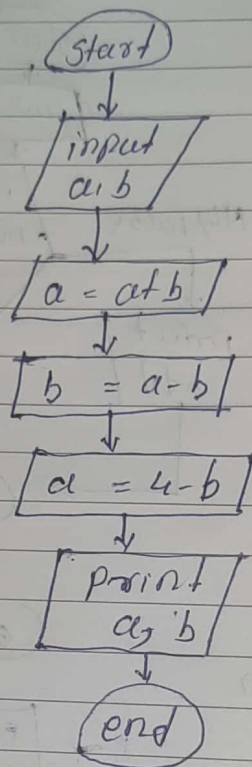 start
input
a, b
a = a+b
b = a-b
a = 4-b
print
a, b
end